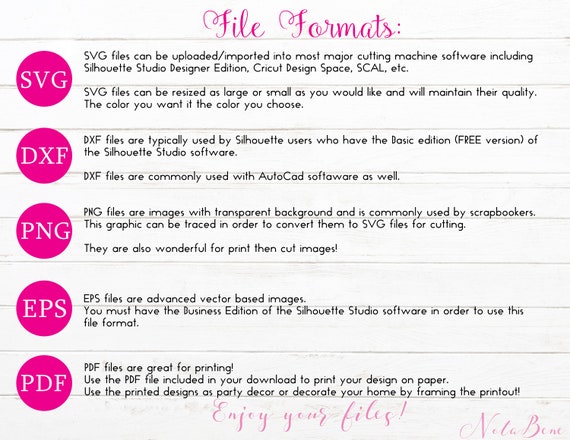 File Formats:
SVG
SVG files can be uploaded/imported into most major cutting machine software including
Silhouette Studio Designer Edition, Cricut Design Space, SCAL, etc.
SVG files can be resized as large or small as you would like and will maintain their quality.
The color you want it the color you choose.
DXF
DXF files are typically used by Silhouette users who have the Basic edition (FREE version) of
the Silhouette Studio software.
DXF files are commonly used with AutoCad softaware as well.
PNG
PNG files are images with transparent background and is commonly used by scrapbookers.
This graphic can be traced in order to convert them to SVG files for cutting.
They are also wonderful for print then cut images!
EPS
EPS files are advanced vector based images.
You must have the Business Edition of the Silhouette Studio software in order to use this
file format.
PDF
PDF files are great for printing!
Use the PDF file included in your download to print your design on paper.
Use the printed designs as party decor or decorate your home by framing the printout!
Enjoy your files!
NolaBene